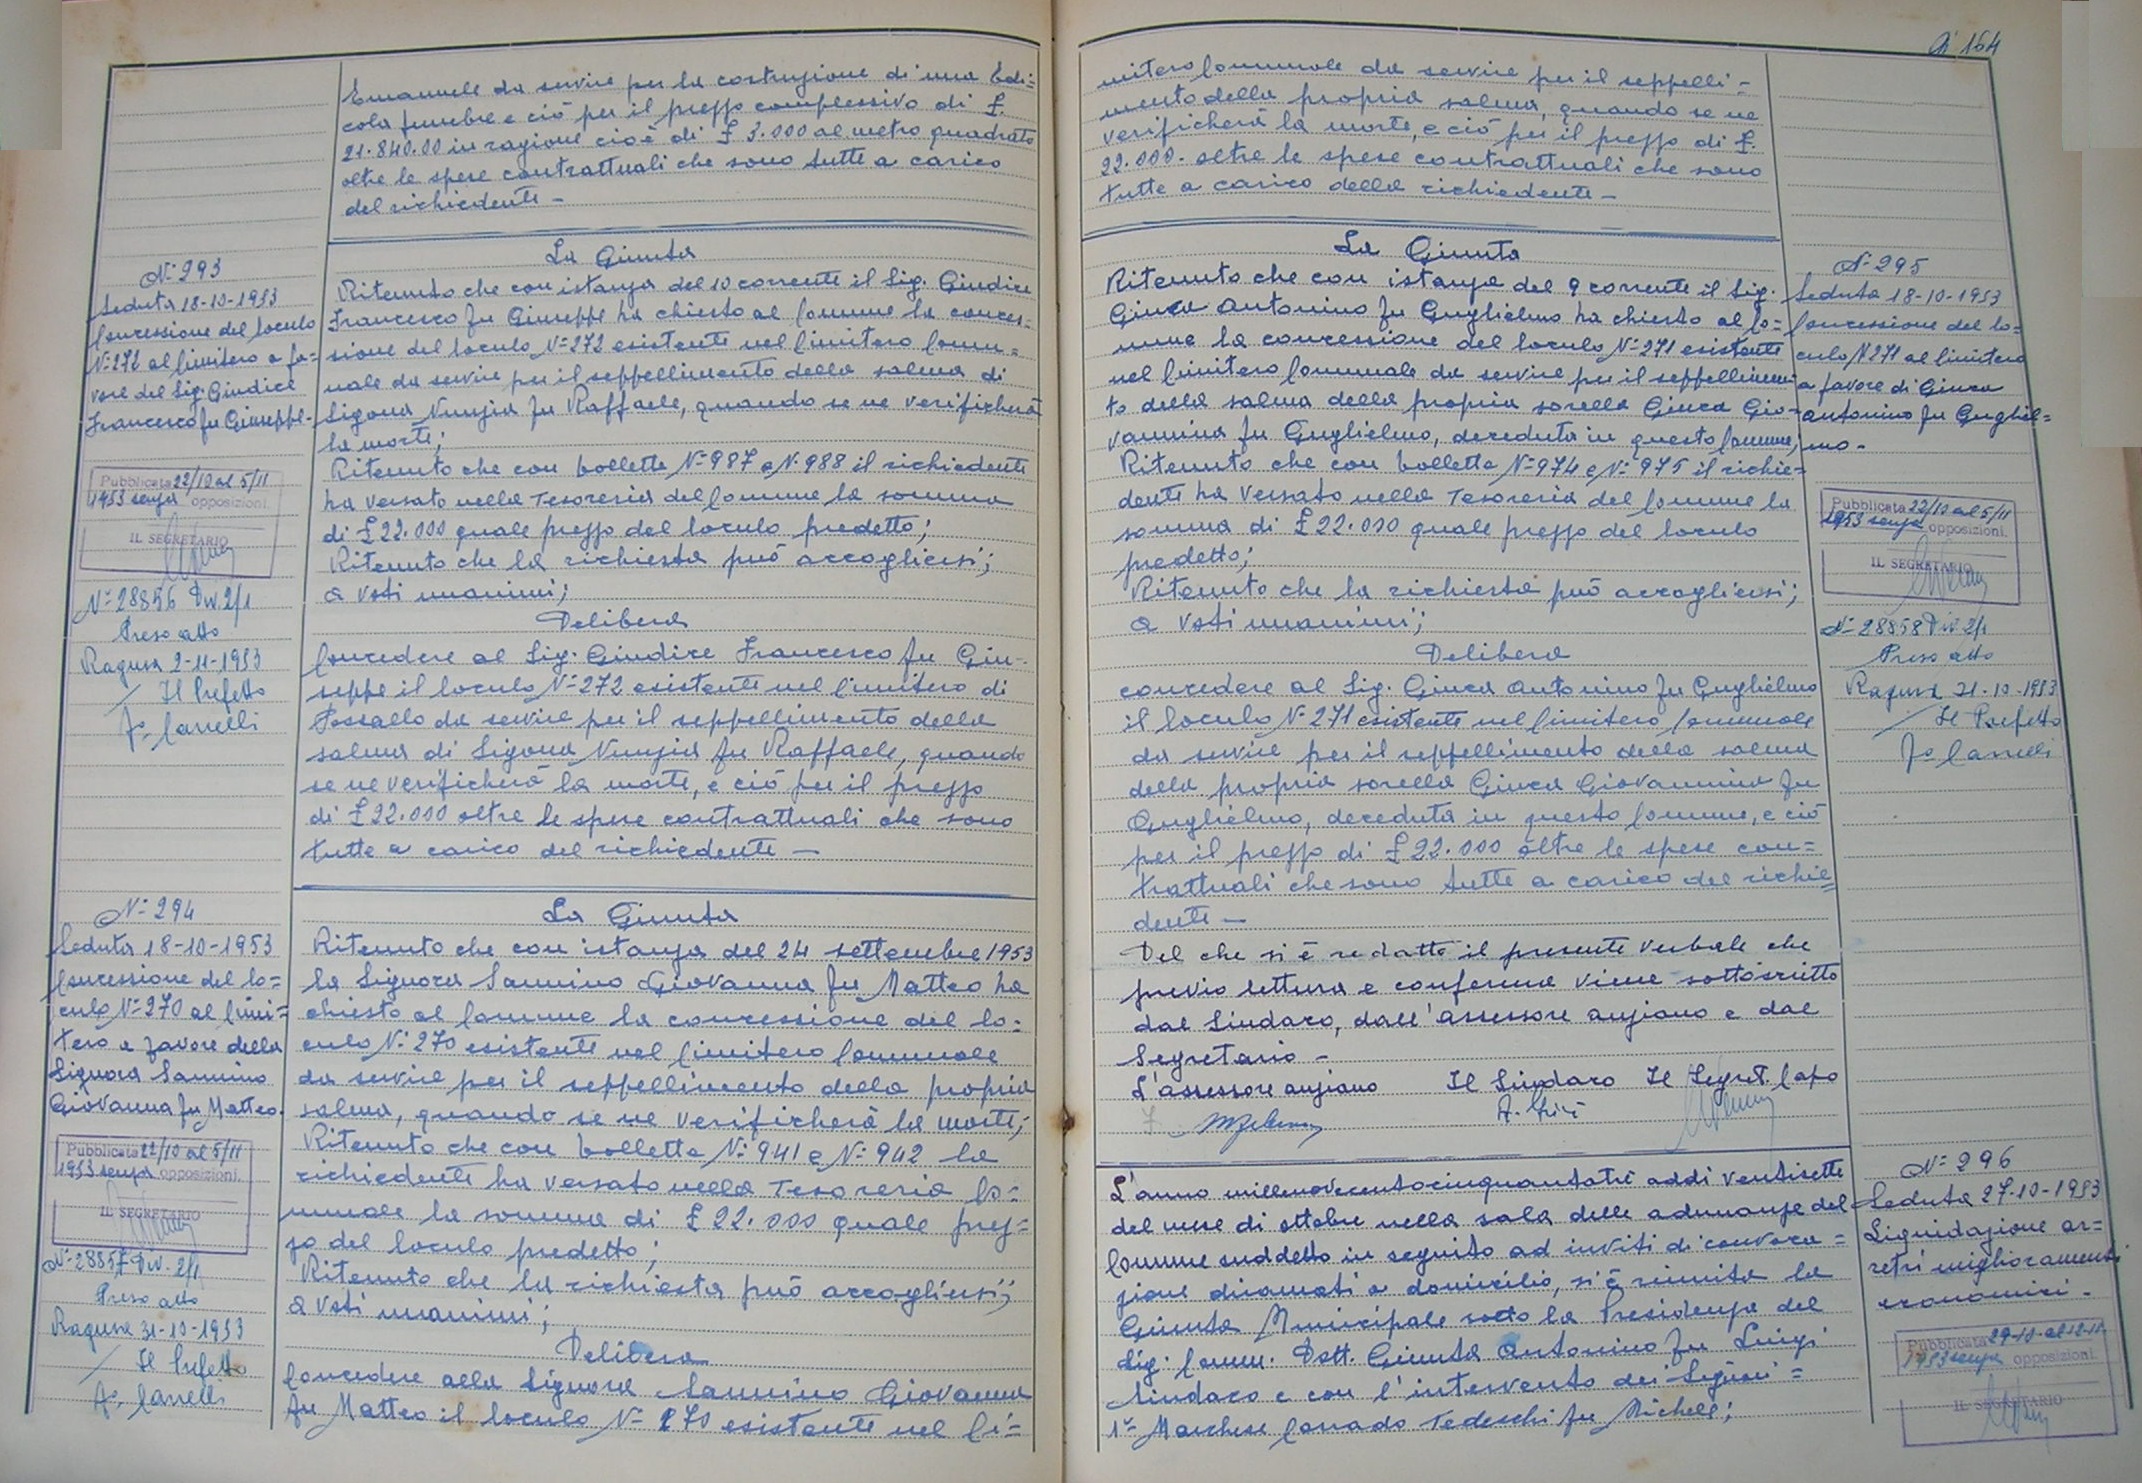 Emanuele da servire per la costruzione di una Edi=
cola funebre e ciò per il prezzo complessivo di £.
21.840.00 in ragione cioè di £ 3.000 al metro quadrato
oltre le spese contrattuali che sono tutte a carico
del richiedente -
N° 293
Seduta 18-10-1953
Concessione del loculo
N° 272 al Cimitero a fa=
vore del Sig. Giudice
Francesco fu Giuseppe.
Pubblicata 22/10 al 5/11
1953 senza opposizioni.
IL SEGRETARIO
N° 28856 Div. 2/1
Preso atto
Ragusa 2-11-1953
Il Prefetto
La Giunta
Ritenuto che con istanza del 10 corrente il Sig. Giudice
Francesco fu Giuseppe ha chiesto al Comune la conces=
sione del loculo N° 272 esistente nel Cimitero Comu=
nale da servire per il seppellimento della salma di
Sigona Nunzia fu Raffaele, quando se ne verificherà
la morte;
Ritenuto che con bollette N° 987 e N° 988 il richiedente
ha versato nella Tesoreria del Comune la somma
di £ 22.000 quale prezzo del loculo predetto;
Ritenuto che la richiesta può accogliersi;
a voti unanimi;
Delibera
Concedere al Sig. Giudice Francesco fu Giu-
seppe il loculo N° 272 esistente nel Cimitero di
Pozzallo da servire per il seppellimento della
salma di Sigona Nunzia fu Raffaele, quando
se ne verificherà la morte, e ciò per il prezzo
di £ 22.000 oltre le spese contrattuali che sono
tutte a carico del richiedente -
N° 294
Seduta 18-10-1953
Concessione del lo=
culo N° 270 al Cimi=
tero a favore della
Signora Sannino
Giovanna fu Matteo.
Pubblicata 22/10 al 5/11
1953 senza opposizioni.
IL SEGRETARIO
N° 28857 Div. 2/1
Preso atto
Ragusa 31-10-1953
Il Prefetto
La Giunta
Ritenuto che con istanza del 24 settembre 1953
la Signora Sannino Giovanna fu Matteo ha
chiesto al Comune la concessione del lo=
culo N° 270 esistente nel Cimitero Comunale
da servire per il seppellimento della propria
salma, quando se ne verificherà la morte;
Ritenuto che con bollette N° 941 e N° 942 la
richiedente ha versato nella Tesoreria Co=
munale la somma di £ 22.000 quale prez=
zo del loculo predetto;
Ritenuto che la richiesta può accogliersi;
a voti unanimi;
Delibera
Concedere alla Signora Sannino Giovanna
fu Matteo il loculo N° 270 esistente nel Ci=
164
mitero Comunale da servire per il seppelli=
mento della propria salma, quando se ne
verificherà la morte, e ciò per il prezzo di £.
22.000. oltre le spese contrattuali che sono
tutte a carico della richiedente -
La Giunta
Ritenuto che con istanza del 9 corrente il Sig.
Giuca Antonino fu Guglielmo ha chiesto al Co=
mune la concessione del loculo N° 271 esistente
nel Cimitero Comunale da servire per il seppellimen
to della salma della propria sorella Giuca Gio-
vannina fu Guglielmo, deceduta in questo Comune;
Ritenuto che con bollette N° 974 e N° 975 il richie=
dente ha versato nella Tesoreria del Comune la
somma di £ 22.000 quale prezzo del loculo
predetto;
Ritenuto che la richiesta può accogliersi;
a voti unanimi;
Delibera
concedere al Sig. Giuca Antonino fu Guglielmo
il loculo N° 271 esistente nel Cimitero Comunale
da servire per il seppellimento della salma
della propria sorella Giuca Giovannina fu
Guglielmo, deceduta in questo Comune, e ciò
per il prezzo di £ 22.000 oltre le spese con=
trattuali che sono tutte a carico del richie=
dente -
N° 295
Seduta 18-10-1953
Concessione del lo=
culo N° 271 al Cimitero
a favore di Giuca
Antonino fu Gugliel=
mo -
Pubblicata 22/10 al 5/11
1953 senza opposizioni.
IL SEGRETARIO
N° 28858 Div. 2/1
Preso atto
Ragusa 31-10-1953
Il Prefetto
Del che si è redatto il presente verbale che
previo lettura e conferma viene sottoscritto
dal Sindaco, dall'assessore anziano e dal
Segretario -
L'assessore anziano Il Sindaco Il Segret. Capo
L'anno millenovecentocinquantatrè addì ventisette
del mese di ottobre nella sala delle adunanze del
Comune suddetto in seguito ad inviti di convoca=
zione diramati a domicilio, si è riunita la
Giunta Municipale sotto la Presidenza del
Sig. Comm. Dott. Giunta Antonino fu Luigi
Sindaco e con l'intervento dei Signori =
1° Marchese Corrado Tedeschi fu Michele;
N° 296
Seduta 27-10-1953
Liquidazione ar=
retri miglioramenti
economici -
Pubblicata 29-10 al 12-11
1953 senza opposizioni
IL SEGRETARIO